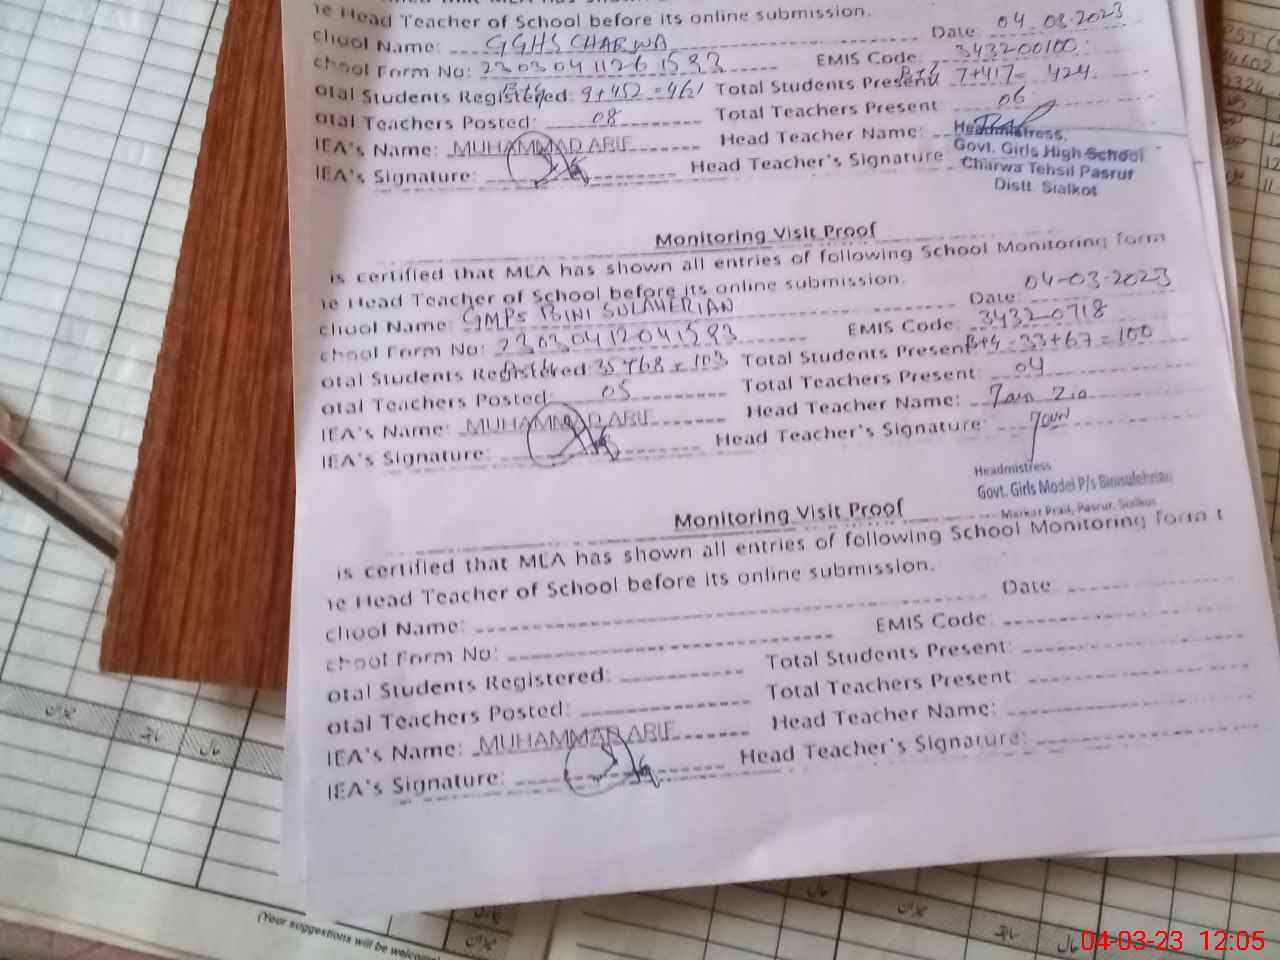 he Head Teacher of School before its online submission.
chool Name: GGHS CHARWA Date 04-03-2023
chool Form No: 23030411261583 EMIS Code: 343200100
otal Students Registered: 9+452=461 Total Students Present 7+417= 424
otal Teachers Posted: 08 Total Teachers Present 06
IEA's Name: MUHAMMAD ARIF Head Teacher Name:
IEA's Signature: Head Teacher's Signature
Headmistress,
Govt. Girls High School
Charwa Tehsil Pasrur
Distt. Sialkot
Monitoring Visit Proof
is certified that MEA has shown all entries of following School Monitoring form
he Head Teacher of School before its online submission.
chool Name: GMPS BINI SULAHERIAN Date: 04-03-2023
chool Form No: 23030412041583 EMIS Code: 34320718
otal Students Registered: 35+68=103 Total Students Present 33+67=100
otal Teachers Posted: 05 Total Teachers Present: 04
IEA's Name: MUHAMMAD ARIF Head Teacher Name: Zia
IEA's Signature: Head Teacher's Signature:
Headmistress
Govt. Girls Model P/s Binisulehrian
Pasrur, Sialkot
Monitoring Visit Proof
is certified that MEA has shown all entries of following School Monitoring form t
he Head Teacher of School before its online submission.
chool Name: Date:
chool Form No: EMIS Code:
otal Students Registered: Total Students Present:
otal Teachers Posted: Total Teachers Present:
IEA's Name: MUHAMMAD ARIF Head Teacher Name:
IEA's Signature: Head Teacher's Signature:
(Your suggestions will be welcome
04-03-23 12:05